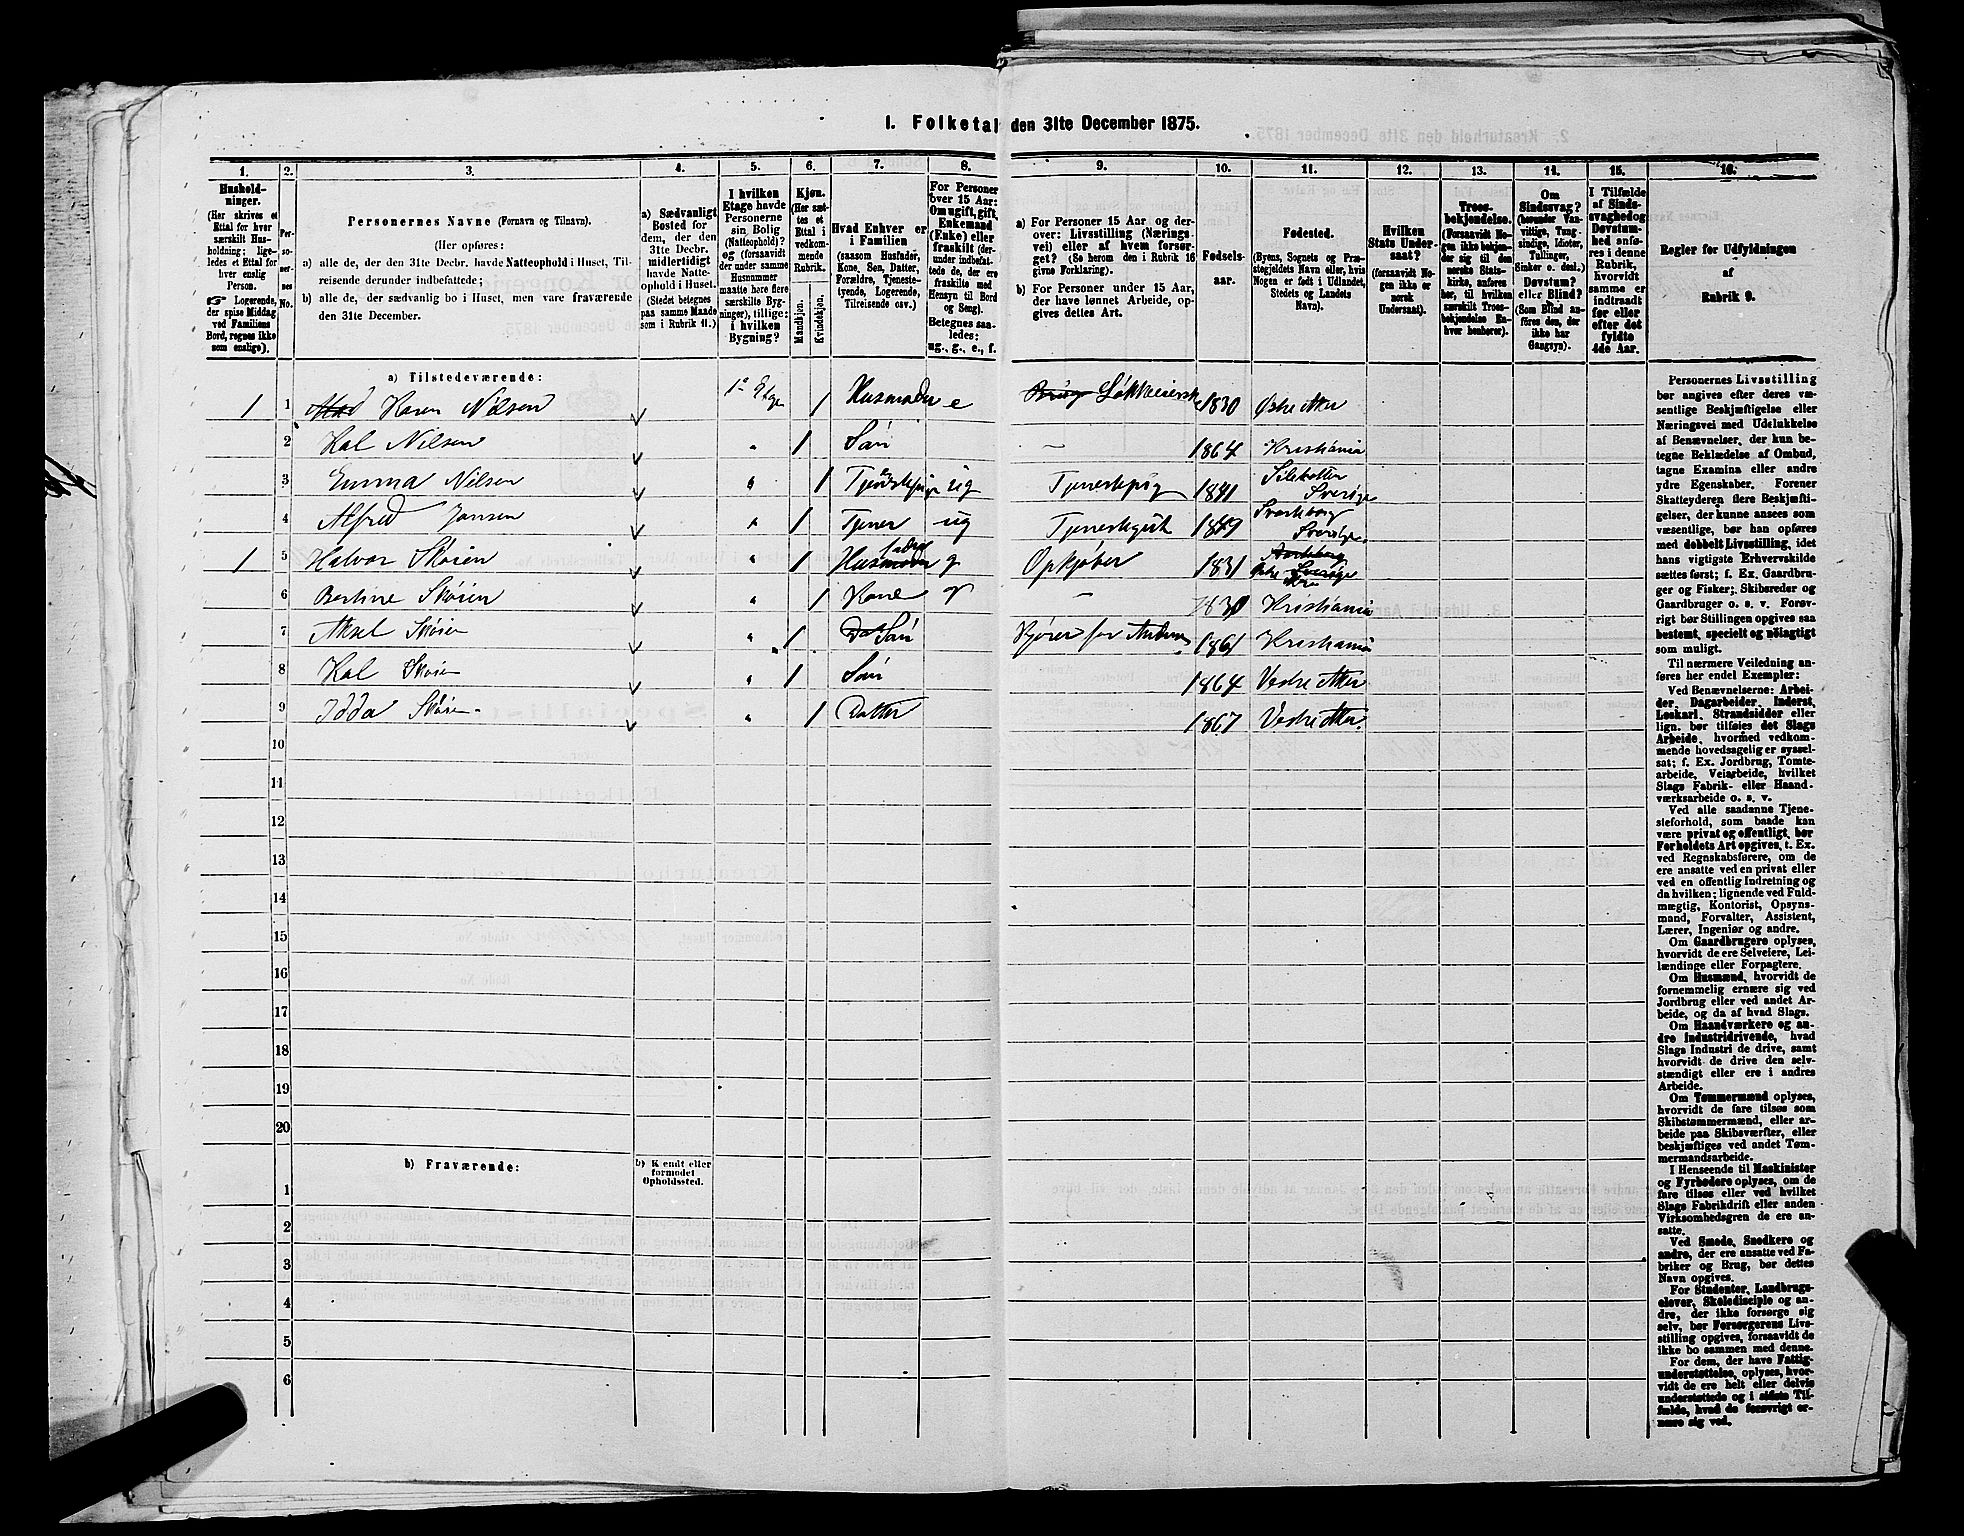 1. Folketal den 31te December 1875.
1.
2.
3.
4.
5.
6.
7.
8.
9.
10.
11.
12.
13.
14.
15.
16.
Hushold-
ninger.
(Her skrives et
Ettal for hver
særskilt Hus-
holdning; lige-
ledes et Ettal for
hver enslig
Person.
☞ Logerende,
der spise Middag
ved Familiens
Bord, regnes ikke
som enslige).
Per-
so-
ner-
nes
No.
Personernes Navne (Fornavn og Tilnavn).
(Her opføres:
a) alle de, der den 31te Decbr. havde Natteophold i Huset, Til-
reisende derunder indbefattede;
b) alle de, der sædvanlig bo i Huset, men vare fraværende
den 31te December.
a) Sædvanligt
Bosted for
dem, der den
31te Decbr.
midlertidigt
havde Natte-
ophold i Huset.
(Stedet betegnes
paa samme Maade
som i Rubrik 11.)
I hvilken
Etage havde
Personerne
sin Bolig
(Natteophold)?
og (forsaavidt
der under samme
Husnummer
maatte høre flere
særskilte Byg-
ninger), tillige:
i hvilken
Bygning?
Kjøn.
(Her sæt-
tes et
Ettal i
vedkom-
mende
Rubrik.
Mandkjøn.
Kvindekjøn.
Hvad Enhver er
i Familien
(saasom Husfader,
Kone, Søn, Datter,
Forældre, Tjeneste-
tyende, Logerende,
Tilreisende osv.)
For Personer
over 15 Aar:
Om ugift, gift,
Enkemand
(Enke) eller
fraskilt (der-
under indbefat-
tede de, der ere
fraskilte med
Hensyn til Bord
og Seng).
Betegnes saa-
ledes:
ug., g., e., f.
a) For Personer 15 Aar og der-
over: Livsstilling (Nærings-
vei) eller af hvem forsør-
get? (Se herom den i Rubrik 16
givne Forklaring).
b) For Personer under 15 Aar,
der have lønnet Arbeide, op-
gives dettes Art.
Fødsels-
aar.
Fødested.
(Byens, Sognets og Præ-
stegjeldets Navn eller, hvis
Nogen er født i Udlandet,
Stedets og Landets
Navn).
Hvilken
Stats Under-
saat?
(forsaavidt No-
gen ikke er
norsk
Undersaat).
Troes-
bekjendelse.
(Forsaavidt No-
gen ikke bekjen-
der sig til den
norske Stats-
kirke, anføres
her, til hvilken
særskilt Troes-
bekjendelse En-
hver henhører).
Om
Sindssvag?
(herunder Van-
vittige, Tung-
sindige, Idioter,
Tullinger,
Sinker o. desl.)
Døvstum?
eller Blind?
(Som Blind an-
føres den, der
ikke har
Gangsyn).
I Tilfælde
af Sinds-
svaghed og
Døvstum-
hed anfø-
res i denne
Rubrik,
hvorvidt
samme er
indtraadt
før eller
efter det
fyldte
4de Aar.
Regler for Udfyldningen
af
Rubrik 9.
a) Tilstedeværende:
1 1 Karen Nilsen 1e Etge 1 Husmoder e 1830 Østre Aker
2 Kal Nilsen " 1 Søn — 1864 Kristiania
3 Emma Nilsen " 1 ug Tjenestepig 1841 Sverige
4 Alfred Jansen " 1 Tjener ug Tjenestegut 1849 Sverige
1 5 Halvor Skøien " 1 Husfader g Opkjøber 1831
6 Bertine Skøien " 1 Kone g — 1830 Kristiania
7 Aksel Skøien " 1 Søn Kjører for 1861 Kristiania
8 Kal Skøien " 1 Søn 1864 Vestre Aker
9 Idda Skøien " 1 Datter 1867 Vestre Aker
10
11
12
13
14
15
16
17
18
19
20
b) Fraværende:
b) Kjendt eller
formodet
Opholdssted.
1
2
3
4
5
6
Personernes Livsstilling
bør angives efter deres væ-
sentlige Beskjæftigelse eller
Næringsvei med Udelukkelse
af Benævnelser, der kun be-
tegne Beklædelse af Ombud,
tagne Examina eller andre
ydre Egenskaber. Forener
Skatteyderen flere Beskjæfti-
gelser, der kunne ansees som
væsentlige, bør han opføres
med dobbelt Livsstilling, idet
hans vigtigste Erhvervskilde
sættes først; f. Ex. Gaardbru-
ger og Fisker; Skibsreder og
Gaardbruger o. s. v. Forøv-
rigt bør Stillingen opgives saa
bestemt, specielt og nøiagtigt
som muligt.
Til nærmere Veiledning an-
føres her endel Exempler:
Ved Benævnelserne: Arbei-
der, Dagarbeider, Inderst,
Løskarl, Strandsidder eller
lign. bør tilføies det Slags
Arbeide, hvormed vedkom-
mende hovedsagelig er syssel-
sat; f. Ex. Jordbrug, Tomte-
arbeide, Veiarbeide, hvilket
Slags Fabrik- eller Haand-
værksarbeide o. s. v.
Ved alle saadanne Tjene-
steforhold, som baade kan
være privat og offentligt, bør
Forholdets Art opgives, t. Ex.
ved Regnskabsførere, om de
ere ansatte ved en privat eller
ved en offentlig Indretning og
da hvilken; lignende ved Fuld-
mægtig, Kontorist, Opsyns-
mand, Forvalter, Assistent,
Lærer, Ingeniør og andre.
Om Gaardbrugere oplyses,
hvorvidt de ere Selveiere, Lei-
lændinge eller Forpagtere.
Om Husmænd, hvorvidt de
fornemmelig ernære sig ved
Jordbrug eller ved andet Ar-
beide, og da af hvad Slags.
Om Haandværkere og an-
dre Industridrivende, hvad
Slags Industri de drive, samt
hvorvidt de drive den selv-
stændigt eller ere i andres
Arbeide.
Om Tømmermænd oplyses,
hvorvidt de fare tilsøs som
Skibstømmermænd, eller ar-
beide paa Skibsværfter, eller
beskjæftiges ved andet Tøm-
mermandsarbeide.
I Henseende til Maskinister
og Fyrbødere oplyses, om de
fare tilsøs eller ved hvilket
Slags Fabrikdrift eller anden
Virksomhedsgren de ere an-
satte.
Ved Smede, Snedkere og
andre, der ere ansatte ved Fa-
briker og Brug, bør dettes
Navn opgives.
For Studenter, Landbrugs-
elever, Skoledisciple og an-
dre, der ikke forsørge sig
selv, bør Forsørgerens Livs-
stilling opgives, forsaavidt de
ikke bo sammen med denne.
For dem, der have Fattig-
understøttelse, oplyses, hvor-
vidt de ere helt eller delvis
understøttede og i sidste Til-
fælde, hvad de forøvrigt er-
nære sig ved.